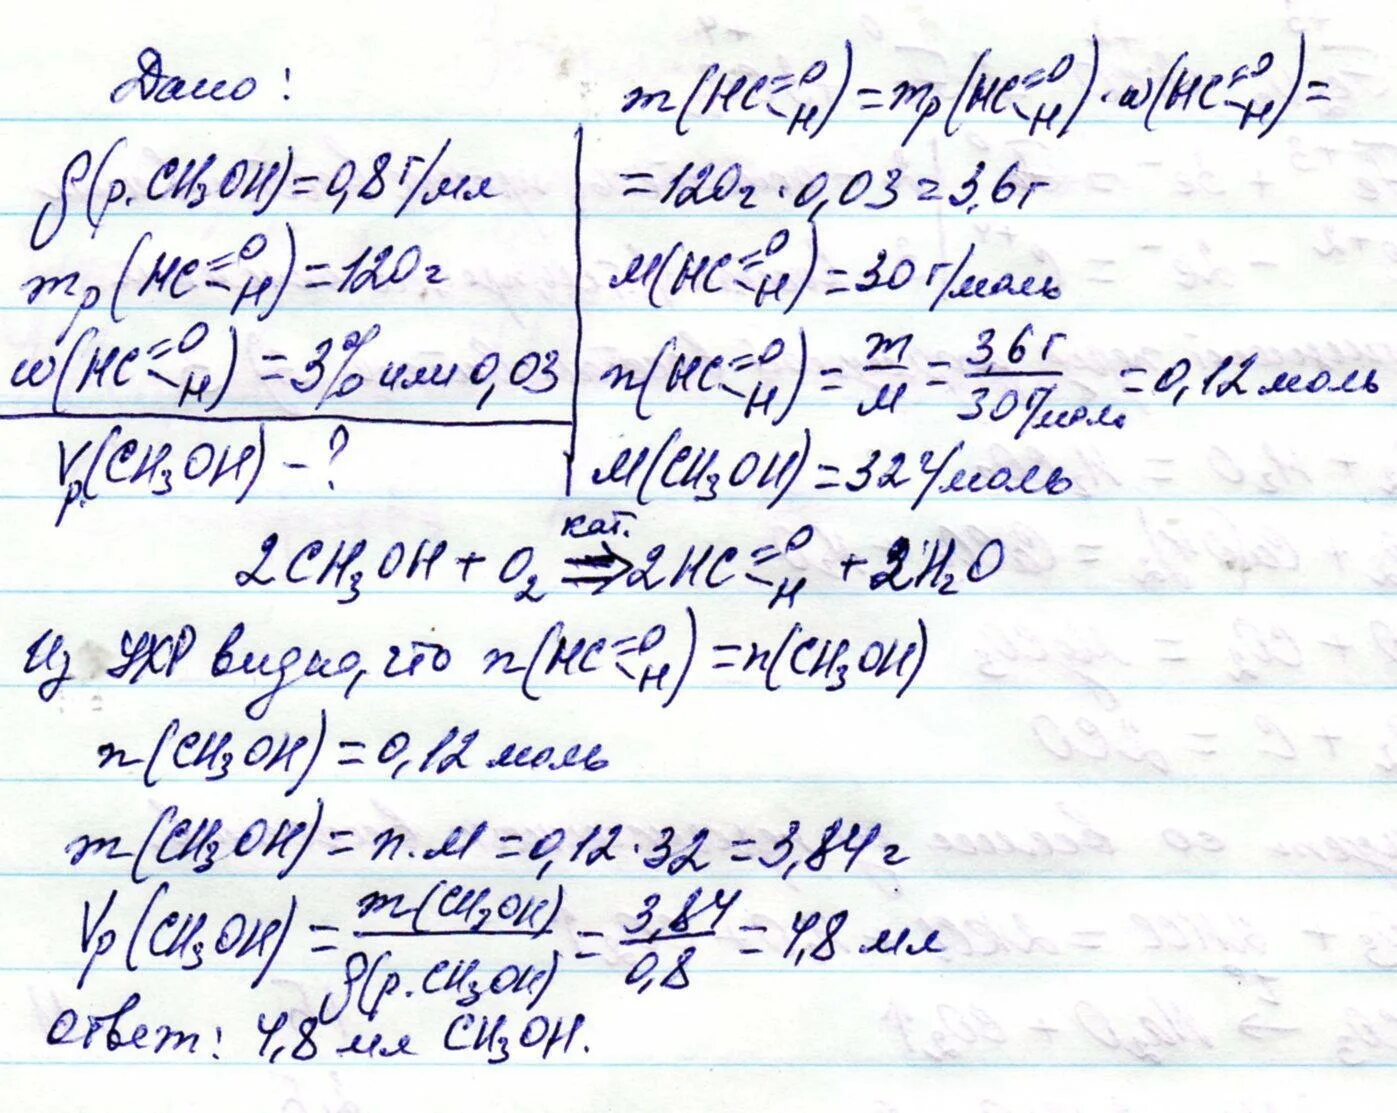 Дано:
ρ(р.CH₃OH)=0,8г/мл
mр(HC=O-H)=120г
ω(HC=O-H)=3% или 0,03
Vр.(CH₃OH)-?
m(HC=O-H)=mр(HC=O-H)·ω(HC=O-H)=
=120г·0,03=3,6г
M(HC=O-H)=30г/моль
n(HC=O-H)=m/M=3,6г/30г/моль=0,12моль
M(CH₃OH)=32г/моль
кат.
2CH₃OH+O₂⇒2HC=O-H+2H₂O
Из УХР видно, что n(HC=O-H)=n(CH₃OH)
n(CH₃OH)=0,12моль
m(CH₃OH)=n.M=0,12·32=3,84г
Vр(CH₃OH)=m(CH₃OH)/ρ(р.CH₃OH)=3,84/0,8=4,8 мл
Ответ: 4,8 мл CH₃OH.